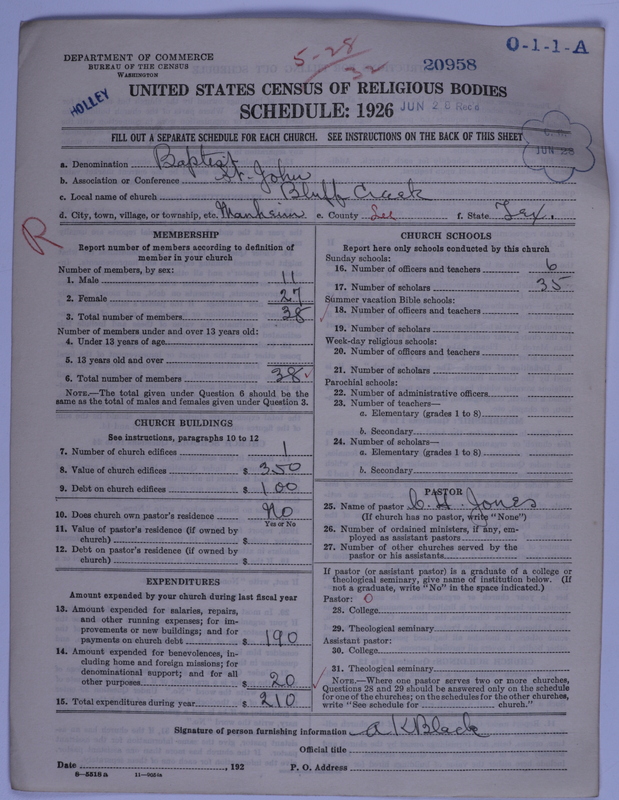 O-1-1-A
5-28
32
20958
DEPARTMENT OF COMMERCE
BUREAU OF THE CENSUS
WASHINGTON
HOLLEY
UNITED STATES CENSUS OF RELIGIOUS BODIES
SCHEDULE: 1926
JUN 28 Rec'd
JUN 28
FILL OUT A SEPARATE SCHEDULE FOR EACH CHURCH. SEE INSTRUCTIONS ON THE BACK OF THIS SHEET
a. Denomination Baptest
b. Association or Conference St. John
c. Local name of church Bluff Creek
d. City, town, village, or township, etc. Manheim e. County Lee f. State Tex.
R
MEMBERSHIP
Report number of members according to definition of
member in your church
Number of members, by sex:
1. Male 11
2. Female 27
3. Total number of members 38
Number of members under and over 13 years old:
4. Under 13 years of age
5. 13 years old and over
6. Total number of members 38
NOTE.—The total given under Question 6 should be the
same as the total of males and females given under Question 3.
CHURCH BUILDINGS
See instructions, paragraphs 10 to 12
7. Number of church edifices 1
8. Value of church edifices $ 350
9. Debt on church edifices $ 100
10. Does church own pastor's residence No
Yes or No
11. Value of pastor's residence (if owned by
church) $
12. Debt on pastor's residence (if owned by
church) $
EXPENDITURES
Amount expended by your church during last fiscal year
13. Amount expended for salaries, repairs,
and other running expenses; for im-
provements or new buildings; and for
payments on church debt $ 190
14. Amount expended for benevolences, in-
cluding home and foreign missions; for
denominational support; and for all
other purposes $ 20
15. Total expenditures during year $ 210
CHURCH SCHOOLS
Report here only schools conducted by this church
Sunday schools:
16. Number of officers and teachers 6
17. Number of scholars 35
Summer vacation Bible schools:
18. Number of officers and teachers
19. Number of scholars
Week-day religious schools:
20. Number of officers and teachers
21. Number of scholars
Parochial schools:
22. Number of administrative officers
23. Number of teachers—
a. Elementary (grades 1 to 8)
b. Secondary
24. Number of scholars—
a. Elementary (grades 1 to 8)
b. Secondary
PASTOR
25. Name of pastor C. H. Jones
(If church has no pastor, write "None")
26. Number of ordained ministers, if any, em-
ployed as assistant pastors
27. Number of other churches served by the
pastor or his assistants
If pastor (or assistant pastor) is a graduate of a college or
theological seminary, give name of institution below. (If
not a graduate, write "No" in the space indicated.)
Pastor: 0
28. College
29. Theological seminary
Assistant pastor:
30. College
31. Theological seminary
NOTE.—Where one pastor serves two or more churches,
Questions 28 and 29 should be answered only on the schedule
for one of the churches; on the schedules for the other churches,
write "See schedule for church."
Signature of person furnishing information A K Black
Official title
Date , 192 P. O. Address
8—5518 a 11—9054a